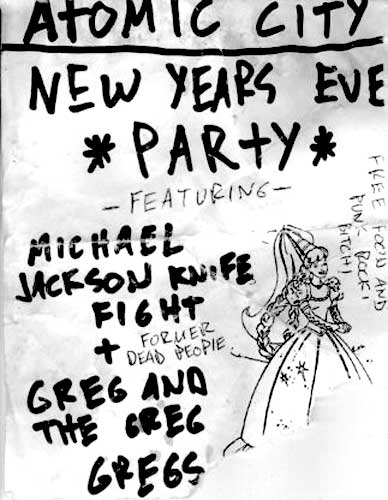 ATOMIC CITY
NEW YEARS EVE
*PARTY*
-FEATURING-
MICHAEL
JACKSON KNIFE
FIGHT
+ FORMER
DEAD PEOPLE
GREG AND
THE GREG
GREGS
FREE FOOD AND
PUNK ROCK!
BITCH!